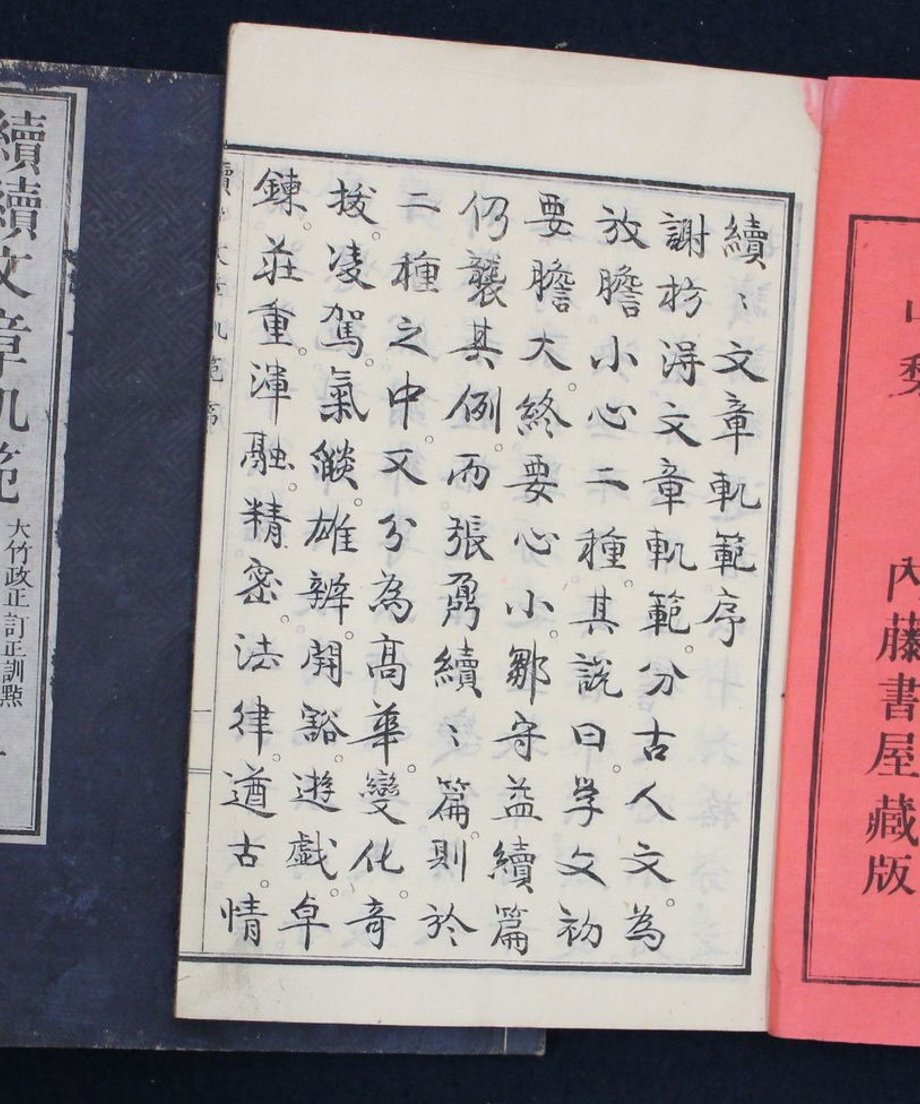 内藤書屋藏版
續〻文章軌範序
謝枋淂文章軌範。分古人文。為
放膽小心二種。其說曰。学文初
要膽大。終要心小。鄒守益續篇
仍襲其例。而張鼐續〻篇。則於
二種之中。又分為髙華。變化。奇
拔。凌駕。氣㷔。雄辨。開豁。遊戲。卓
鍊。莊重。渾融。精密。法律。遒古。情
續續文章軌範
大竹政正訂正訓點